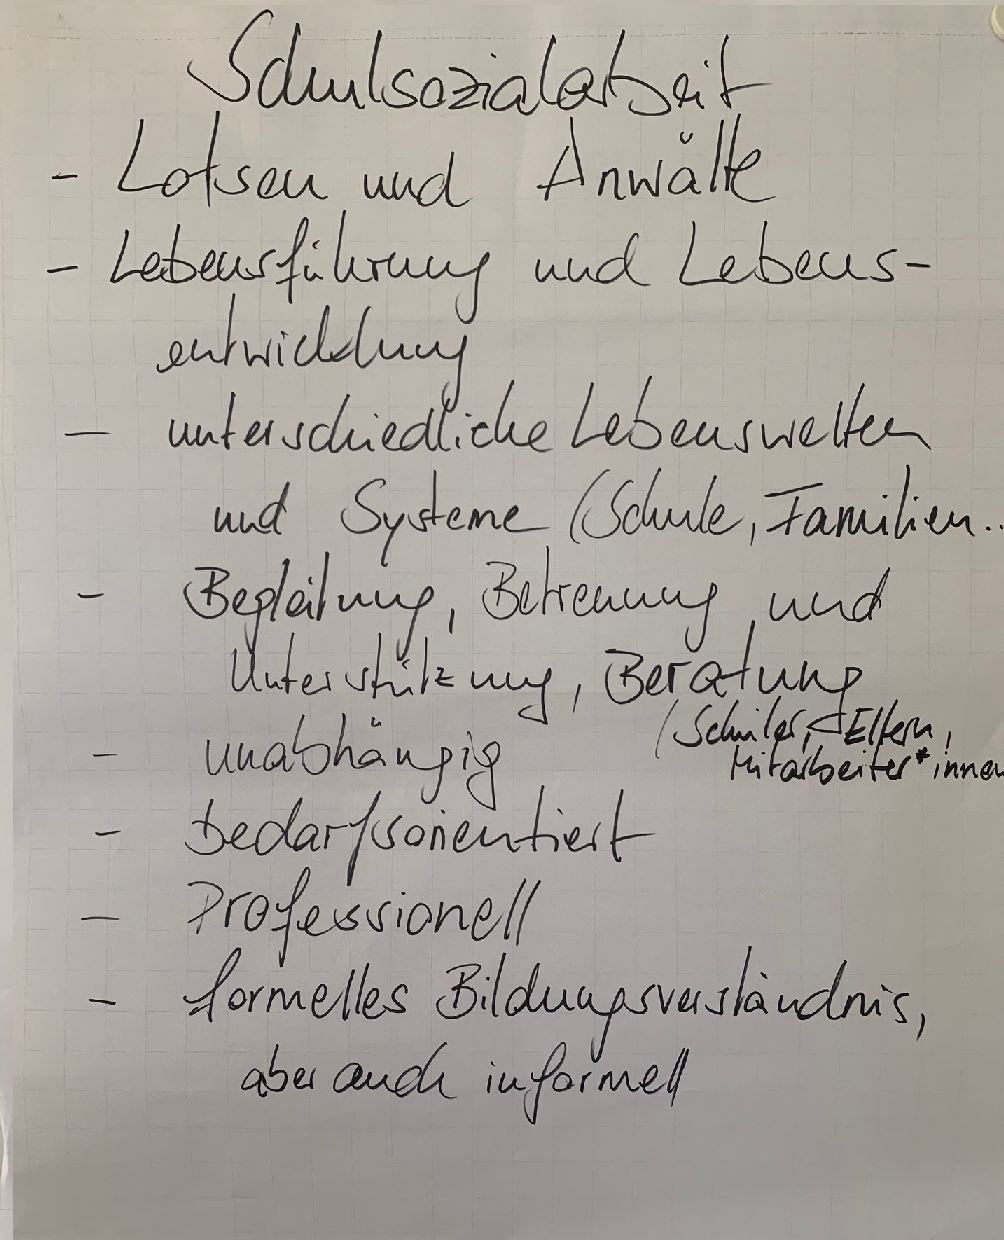 Schulsozialarbeit
- Lotsen und Anwälte
- Lebensführung und Lebens-
entwicklung
- unterschiedliche Lebenswelten
und Systeme (Schule, Familien..
- Begleitung, Betreuung und
Unterstützung, Beratung
(Schüler, Eltern,
Mitarbeiter*innen
- unabhängig
- bedarfsorientiert
- Professionell
- formelles Bildungsverständnis,
aber auch informell